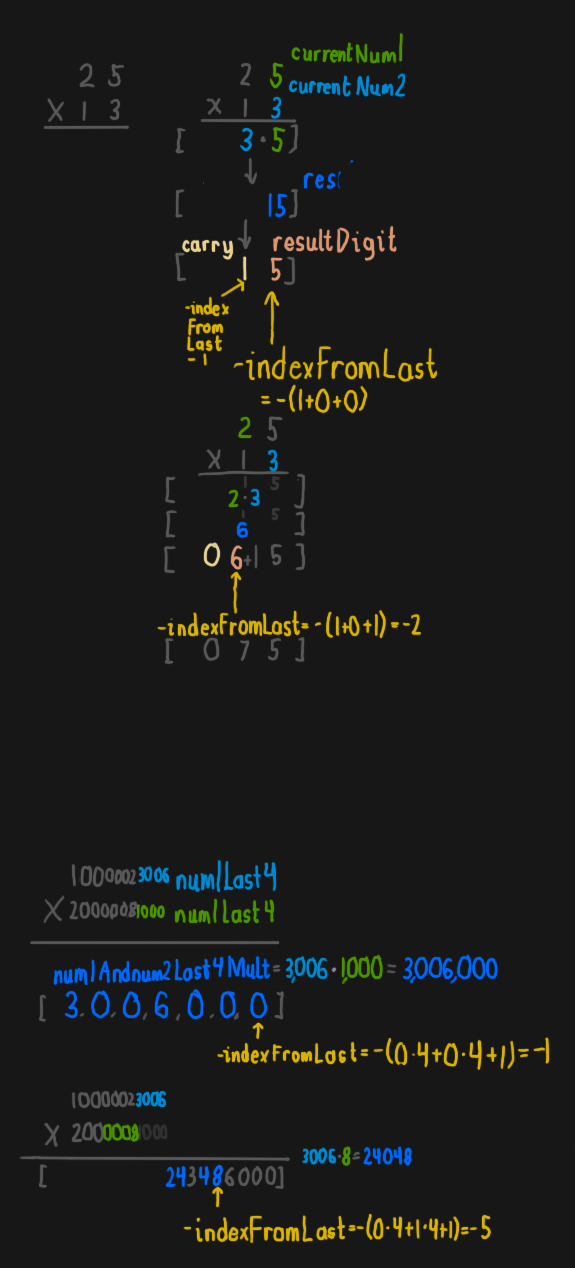 25
X 13
25 currentNum1
X 13 currentNum2
[ 3·5]
↓ res
[ 15]
carry ↓ resultDigit
[ 1 5]
-index
From
Last
-1
-indexFromLast
=-(1+0+0)
25
X 13
1 5
[ 2·3 ]
1 5
[ 6 ]
[ 0 6+1 5 ]
-indexFromLast=-(1+0+1)=-2
[ 0 7 5 ]
10000023006 num1Last4
X 20000081000 num1Last4
num1Andnum2Last4Mult=3,006·1,000=3,006,000
[ 3,0,0,6,0,0,0]
-indexFromLast=-(0·4+0·4+1)=-1
10000023006
X 20000081000
3006·8=24048
[ 243486000]
-indexFromLast=-(0·4+1·4+1)=-5